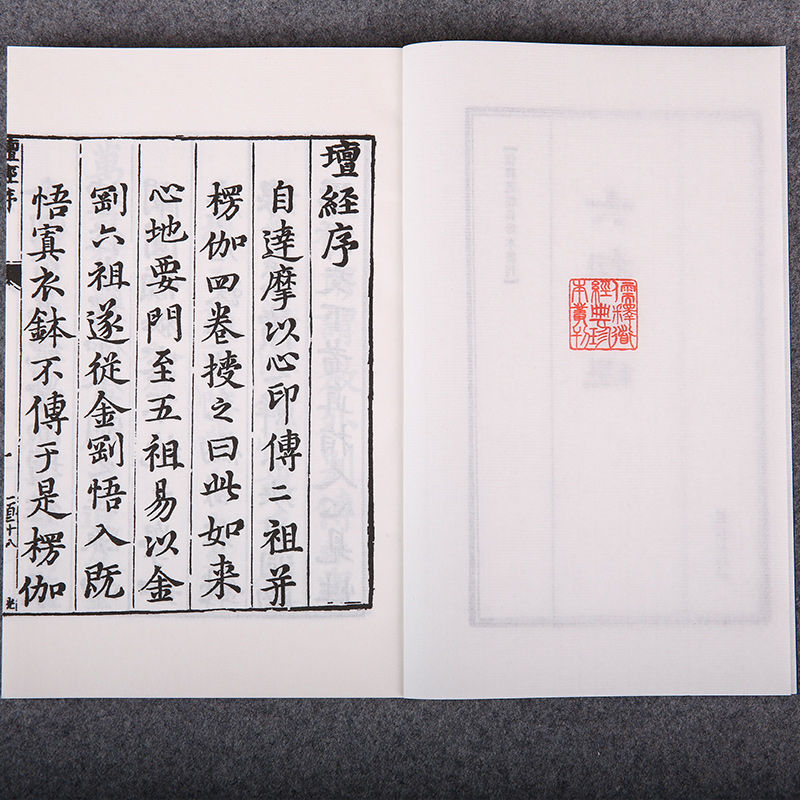 儒釋道
經典珍
本叢刊
壇經序
自達摩以心印傳二祖并
楞伽四卷授之曰此如来
心地要門至五祖易以金
剛六祖遂從金剛悟入既
悟寘衣鉢不傳于是楞伽
壇經序
一
二百十八